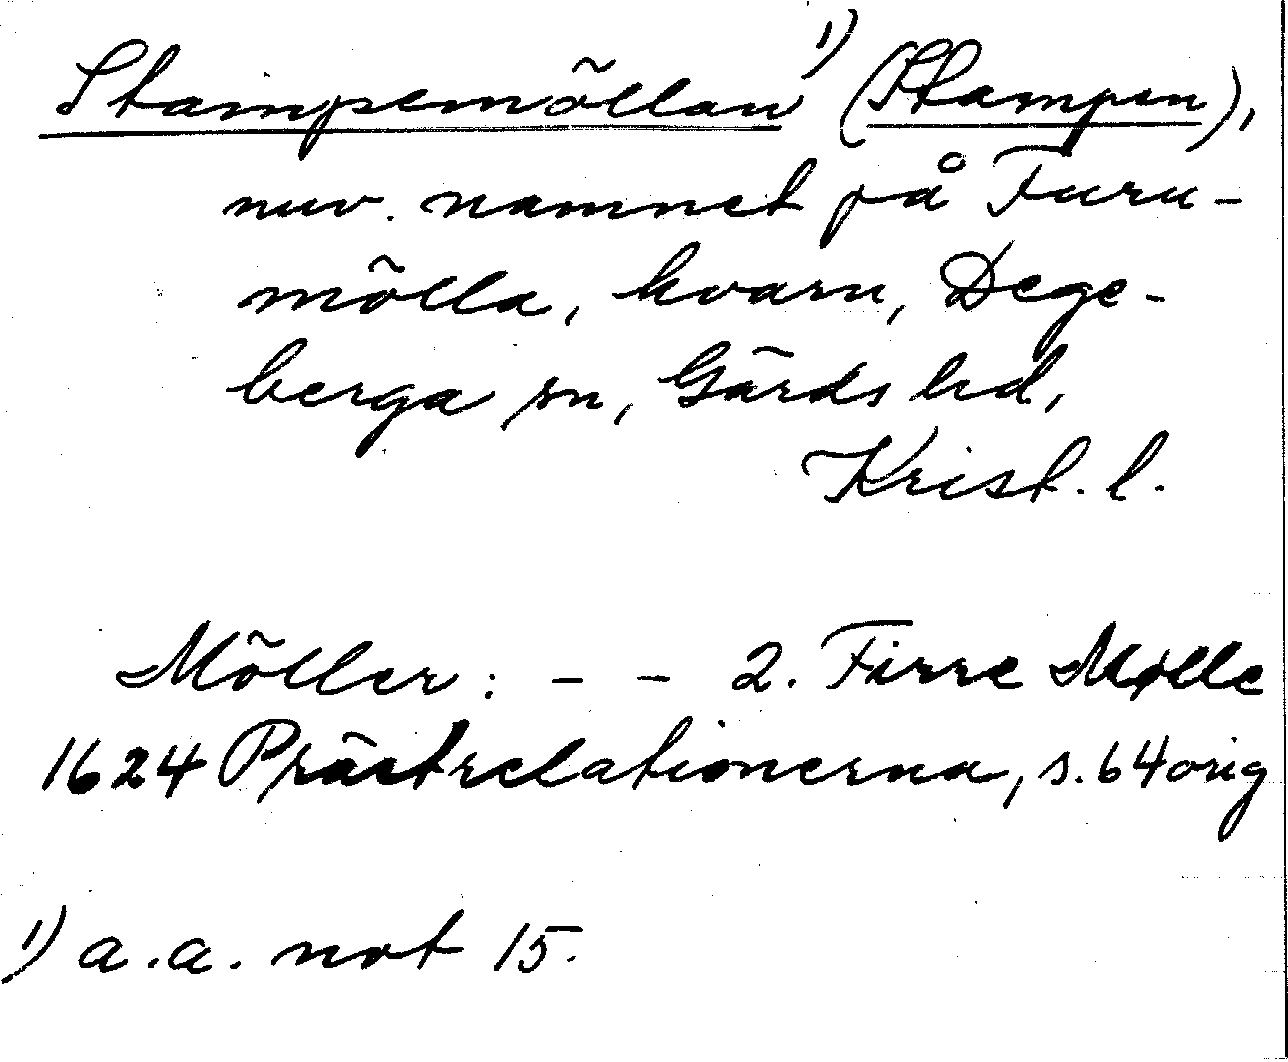 Stampemöllan 1) (Stampen),
nuv. namnet på Furu-
mölla, kvarn, Dege-
berga sn, Gärds hd,
Krist. l.
Möller: - - 2. Firre Mølle
1624 Prästrelationerna, s. 64 orig
1) a.a. not 15.